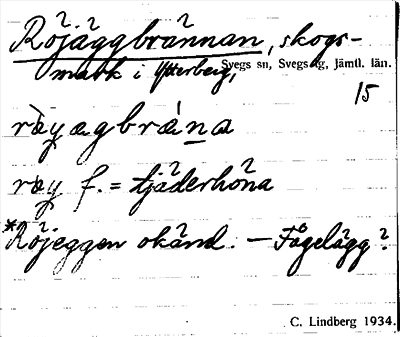 Röjäggbrännan, skogs-
mark i Ytterberg,
Svegs sn, Svegs tg, jämtl. län.
15
rœ̀yægbrǽna
rœy f. = tjäderhöna
*Röjeggen okänd. – Fågelägg?
C. Lindberg 1934.